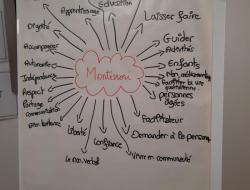 Education
Apprentissage
Laissez faire
Dignité
Guider
Activités
Accompagner
Enfants
Autonomie
Montessori
Non médicamenteux
Faciliter la vie
quotidienne
Indépendance
personnes
âgées
Respect
Partage
communication
Facilitateur
Bienveillance
Liberté
Demander à la personne
Confiance
Le non verbal
Vivre en communauté